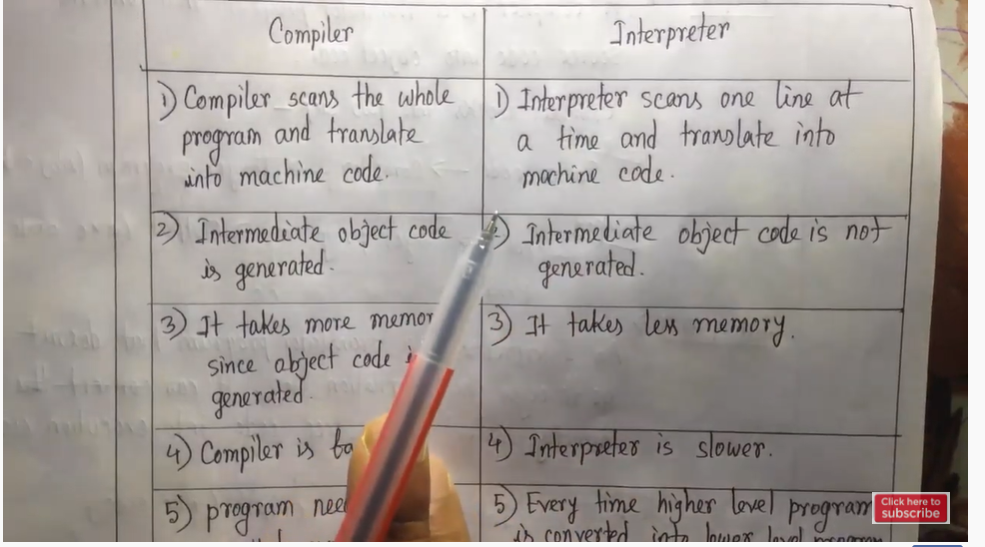 Compiler
Interpreter
1) Compiler scans the whole
program and translate
into machine code.
1) Interpreter scans one line at
a time and translate into
machine code.
2) Intermediate object code
is generated.
Intermediate object code is not
generated.
3) It takes more
since object code
generated.
3) It takes less memory.
4) Compiler is
4) Interpreter is slower.
5) program
5) Every time higher level program
is converted into lower level program
Click here to
subscribe